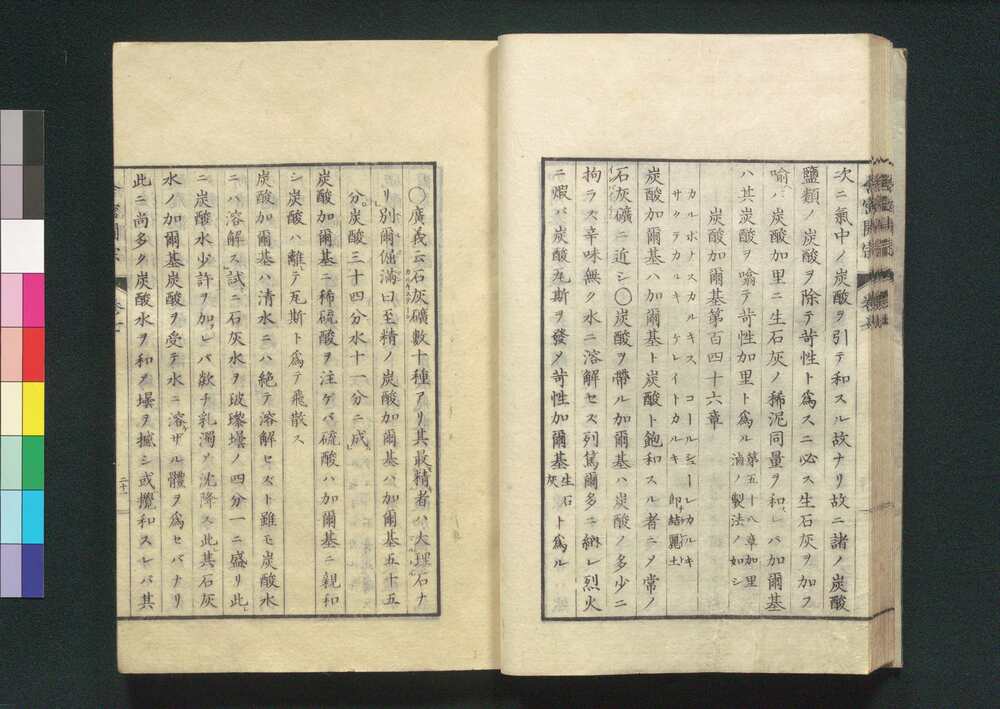 次ニ氣中ノ炭酸ヲ引テ和スル故ナリ故ニ諸ノ炭酸
鹽類ノ炭酸ヲ除テ苛性ト爲スニ必ス生石灰ヲ加フ
喻ヘバ炭酸加里ニ生石灰ノ稀泥同量ヲ和スレバ加爾基
ハ其炭酸ヲ噏テ苛性加里ト爲ル第五十八章加里
滷ノ製法ノ如シ
炭酸加爾基第百四十六章
カルボナスカルキス コールシューレカルキ
サクテカルキ ケレイトカルキ 即ナ結麗土
炭酸加爾基ハ加爾基ト炭酸ト飽和スル者ニ〆常ノ
石灰礦ニ近シ〇炭酸ヲ帶ル加爾基ハ炭酸ノ多少ニ
拘ラス辛味無ク水ニ溶解セズ列篤爾多ニ納レ烈火
ニ煆バ炭酸瓦斯ヲ發〆苛性加爾基生石灰ト爲ル
〇廣義云石灰礦數十種アリ其最精者ハ大理石ナ
リ別爾倔滿曰至精ノ炭酸加爾基ハ加爾基五十五
分炭酸三十四分水十一分ニ成ル
炭酸加爾基ニ稀硫酸ヲ注ゲバ硫酸ハ加爾基ニ親和
シ炭酸ハ離テ瓦斯ト爲テ飛散ス
炭酸加爾基ハ清水ニハ絶テ溶解セズト雖モ炭酸水
ニハ溶解ス試ニ石灰水ヲ玻瓈壜ノ四分一ニ盛リ此
ニ炭酸水少許ヲ加フレバ歘チ乳濁〆沈降ス此レ其石灰
水ノ加爾基炭酸ヲ受テ水ニ溶ザル體ヲ爲セバナリ
此ニ尚多ク炭酸水ヲ和〆壜ヲ搖シ或攪和スレバ其
二十一